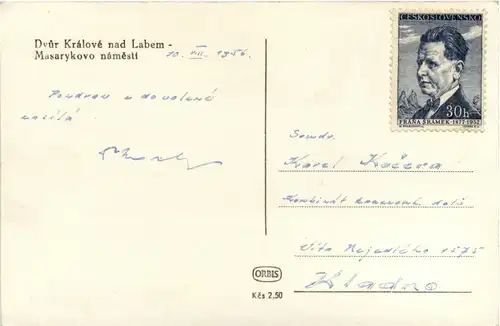 Dvůr Králové nad Labem -
Masarykovo náměstí
10. VIII. 1956.
Pozdrav z dovolené
zasílá
ČESKOSLOVENSKO
30 h
FRÁŇA ŠRÁMEK 1877-1952
Soudr.
Karel Kučera
Kombinát kamenouh. dolů
Víta Nejedlého 1575
Kladno
ORBIS
Kčs 2,50